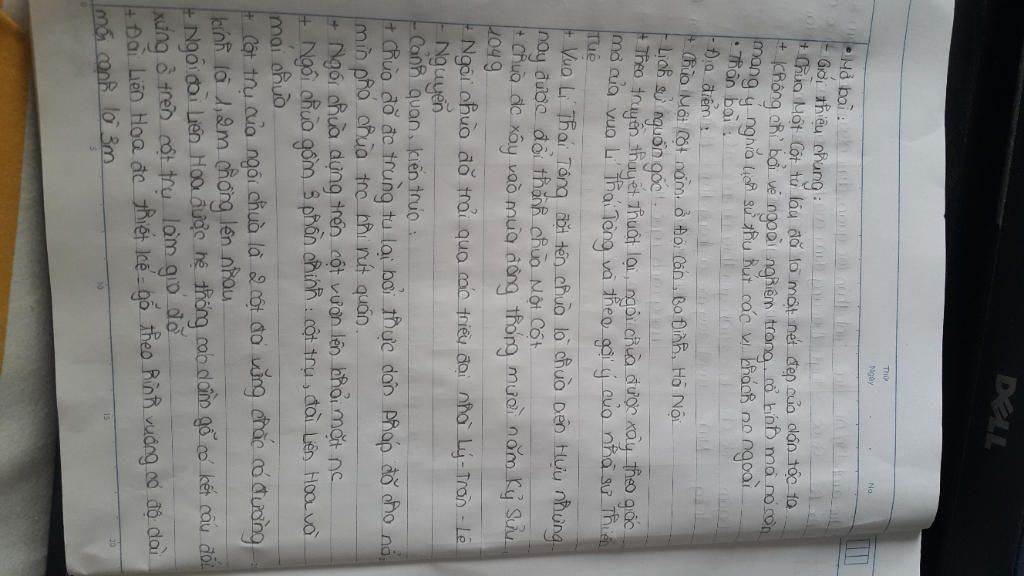 Thứ
Ngày
No.
• Mở bài:
- Giới thiệu chung:
+ Chùa Một Cột từ lâu đã là một nét đẹp của dân tộc ta
+ Không chỉ bởi vẻ ngoài nghiêm trang, cổ kính mà nó còn
mang ý nghĩa lịch sử thu hút các vị khách nc ngoài
• Thân bài:
- Địa điểm:
+ Chùa Một Cột nằm ở đội cấn, Ba Đình, Hà Nội
- Lịch sử nguồn gốc:
+ Theo truyền thuyết thuật lại ngôi chùa được xây theo giấc
mơ của vua Lí Thái Tông và theo gợi ý của nhà sư Thiền
Tuệ
+ Vua Lí Thái Tông đặt tên chùa là chùa Diên Hựu nhưng
nay được đổi thành chùa Một Cột
+ Chùa đc xây vào mùa đông tháng mười năm Kỷ Sửu
1049
+ Ngôi chùa đã trải qua các triều đại nhà Lý - Trần - Lê
- Nguyễn
- Cảnh quan, kiến trúc:
+ Chùa đã đc trùng tu lại bởi thực dân Pháp đã cho nổ
mìn phá chùa trc khi rút quân
+ Ngôi chùa dựng trên cột vươn lên khỏi mặt nc
+ Ngôi chùa gồm 3 phần chính: cột trụ, đài Liên Hoa và
mái chùa
+ Cột trụ của ngôi chùa là 2 cột đá vững chắc có đường
kính là 1,2m chồng lên nhau
+ Ngôi đài Liên Hoa được hệ thống các dầm gỗ có kết cấu đối
xứng ở trên cột trụ làm giá đỡ
+ Đài Liên Hoa đc thiết kế gỗ theo hình vuông có độ dài
mỗi cạnh là 3m
5
10
15
20
DELL